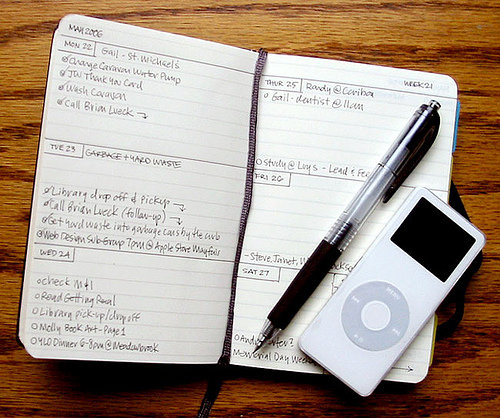 MAY 2006
MON 22 Gail - St. Michael's
Change Caravan Water Pump
JW Thank You Card
Wash Caravan
Call Brian Lueck
TUE 23 GARBAGE + YARD WASTE
Library drop off & pickup
Call Brian Lueck (follow-up)
Get yard waste into garbage cans by the curb
Web Design Sub-Group 7pm @ Apple Store Mayfair
WED 24
check M&I
Read Getting Real
Library pick-up/drop off
Molly Book Art - Page 1
YLD Dinner 6-8pm @ Meadowbrook
THUR 25 Randy @ Caribou WEEK 21
Gail - dentist @ 11am
Study @ Loy's - Lead &
FRI 26
- Steve, Janet,
SAT 27
Memorial Day Week
MENU